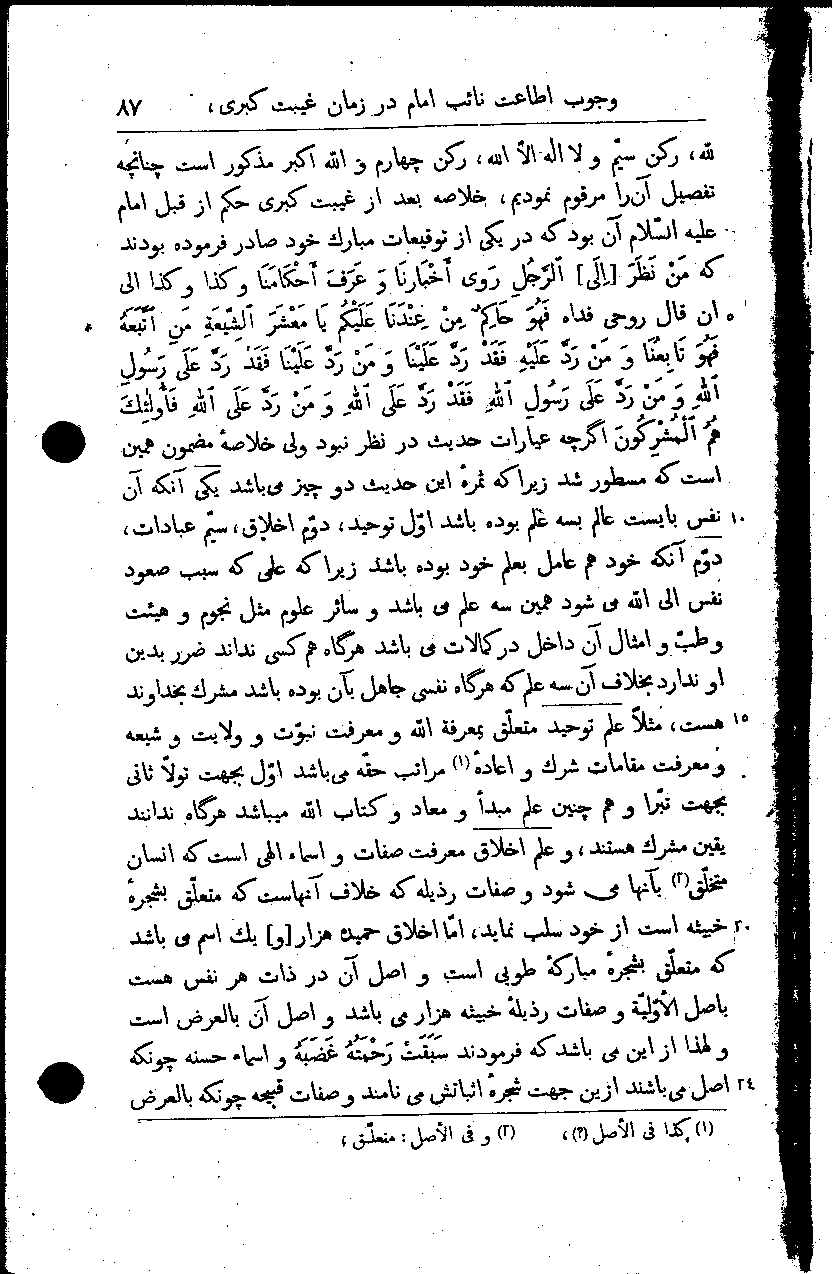 وجوب اطاعت نائب امام در زمان غيبت كبرى ، ٨٧
لله ، ركن سيّم و لا اله الاّ الله ، ركن چهارم و الله اكبر مذكور است چنانچه
تفصيل آن‌را مرقوم نموديم ، خلاصه بعد از غيبت كبرى حكم از قبل امام
عليه السّلام آن بود كه در يكى از توقيعات مبارك خود صادر فرموده بودند
كه مَنْ نَظَرَ [اِلَى] ٱلرَّجُلِ رَوى أَخْبَارنَا وَ عَرَفَ أَحْكَامَنَا و كذا و كذا الى
٥ ان قال روحى فداه فَهُوَ حَاكِمٌ مِنْ عِنْدَنَا عَلَيْكُم يَا مَعْشَرَ ٱلشّيعَةِ مَنِ ٱتَّبَعَهُ *
فَهُوَ تَابِعُنَا وَ مَنْ رَدَّ عَلَيْهِ فَقَدْ رَدَّ عَلَيْنَا وَ مَنْ رَدَّ عَلَيْنَا فَقَدْ رَدَّ عَلَى رَسُولِ
ٱللهِ وَ مَنْ رَدَّ عَلَى رَسُولِ ٱللهِ فَقَدْ رَدَّ عَلَى ٱللهِ وَ مَنْ رَدَّ عَلَى ٱللهِ فَأُولئِكَ
هُمُ ٱلْمُشْرِكُونَ اگرچه عبارات حديث در نظر نبود ولى خلاصهٔ مضمون همين
است كه مسطور شد زيرا كه ثمرهٔ اين حديث دو چيز مى‌باشد يكى آنكه آن
١٠ نفس بايست عالم بسه علم بوده باشد اوّل توحيد ، دوّم اخلاق ، سيّم عبادات ،
دوّم آنكه خود هم عامل بعلم خود بوده باشد زيرا كه علمى كه سبب صعود
نفس الى الله مى شود همين سه علم مى باشد و سائر علوم مثل نجوم و هيئت
و طبّ و امثال آن داخل در كمالات مى باشد هرگاه هم كسى نداند ضرر بدين
او ندارد بخلاف آن سه علم كه هرگاه نفسى جاهل بآن بوده باشد مشرك بخداوند
١٥ هست ، مثلاً علم توحيد متعلّق بمعرفة الله و معرفت نبوّت و ولايت و شيعه
و معرفت مقامات شرك و اعادهٔ (١) مراتب حقّه مى‌باشد اوّل بجهت تولاّ ثانى
بجهت تبرّا و هم چنين علم مبدأ و معاد و كتاب الله ميباشد هرگاه ندانند
يقين مشرك هستند ، و علم اخلاق معرفت صفات و اسماء الهى است كه انسان
متخلّق (٢) بآنها مى شود و صفات رذيله كه خلاف آنهاست كه متعلّق بشجرهٔ
٢٠ خبيثه است از خود سلب نمايد ، امّا اخلاق حميده هزار [و] يك اسم مى باشد
كه متعلّق بشجرهٔ مباركهٔ طوبى است و اصل آن در ذات هر نفس هست
باصل الأوّليّة و صفات رذيلهٔ خبيثه هزار مى باشد و اصل آن بالعرض است
و لهذا از اين مى باشد كه فرمودند سَبَقَتْ رَحْمَتُهُ غَضَبَهُ و اسماء حسنه چونكه
٢٤ اصل مى‌باشند ازين جهت شجرهٔ اثباتش مى نامند و صفات قبيحه چونكه بالعرض
(١) كذا فى الأصل (?) ، (٢) و فى الأصل : متعلّق ،